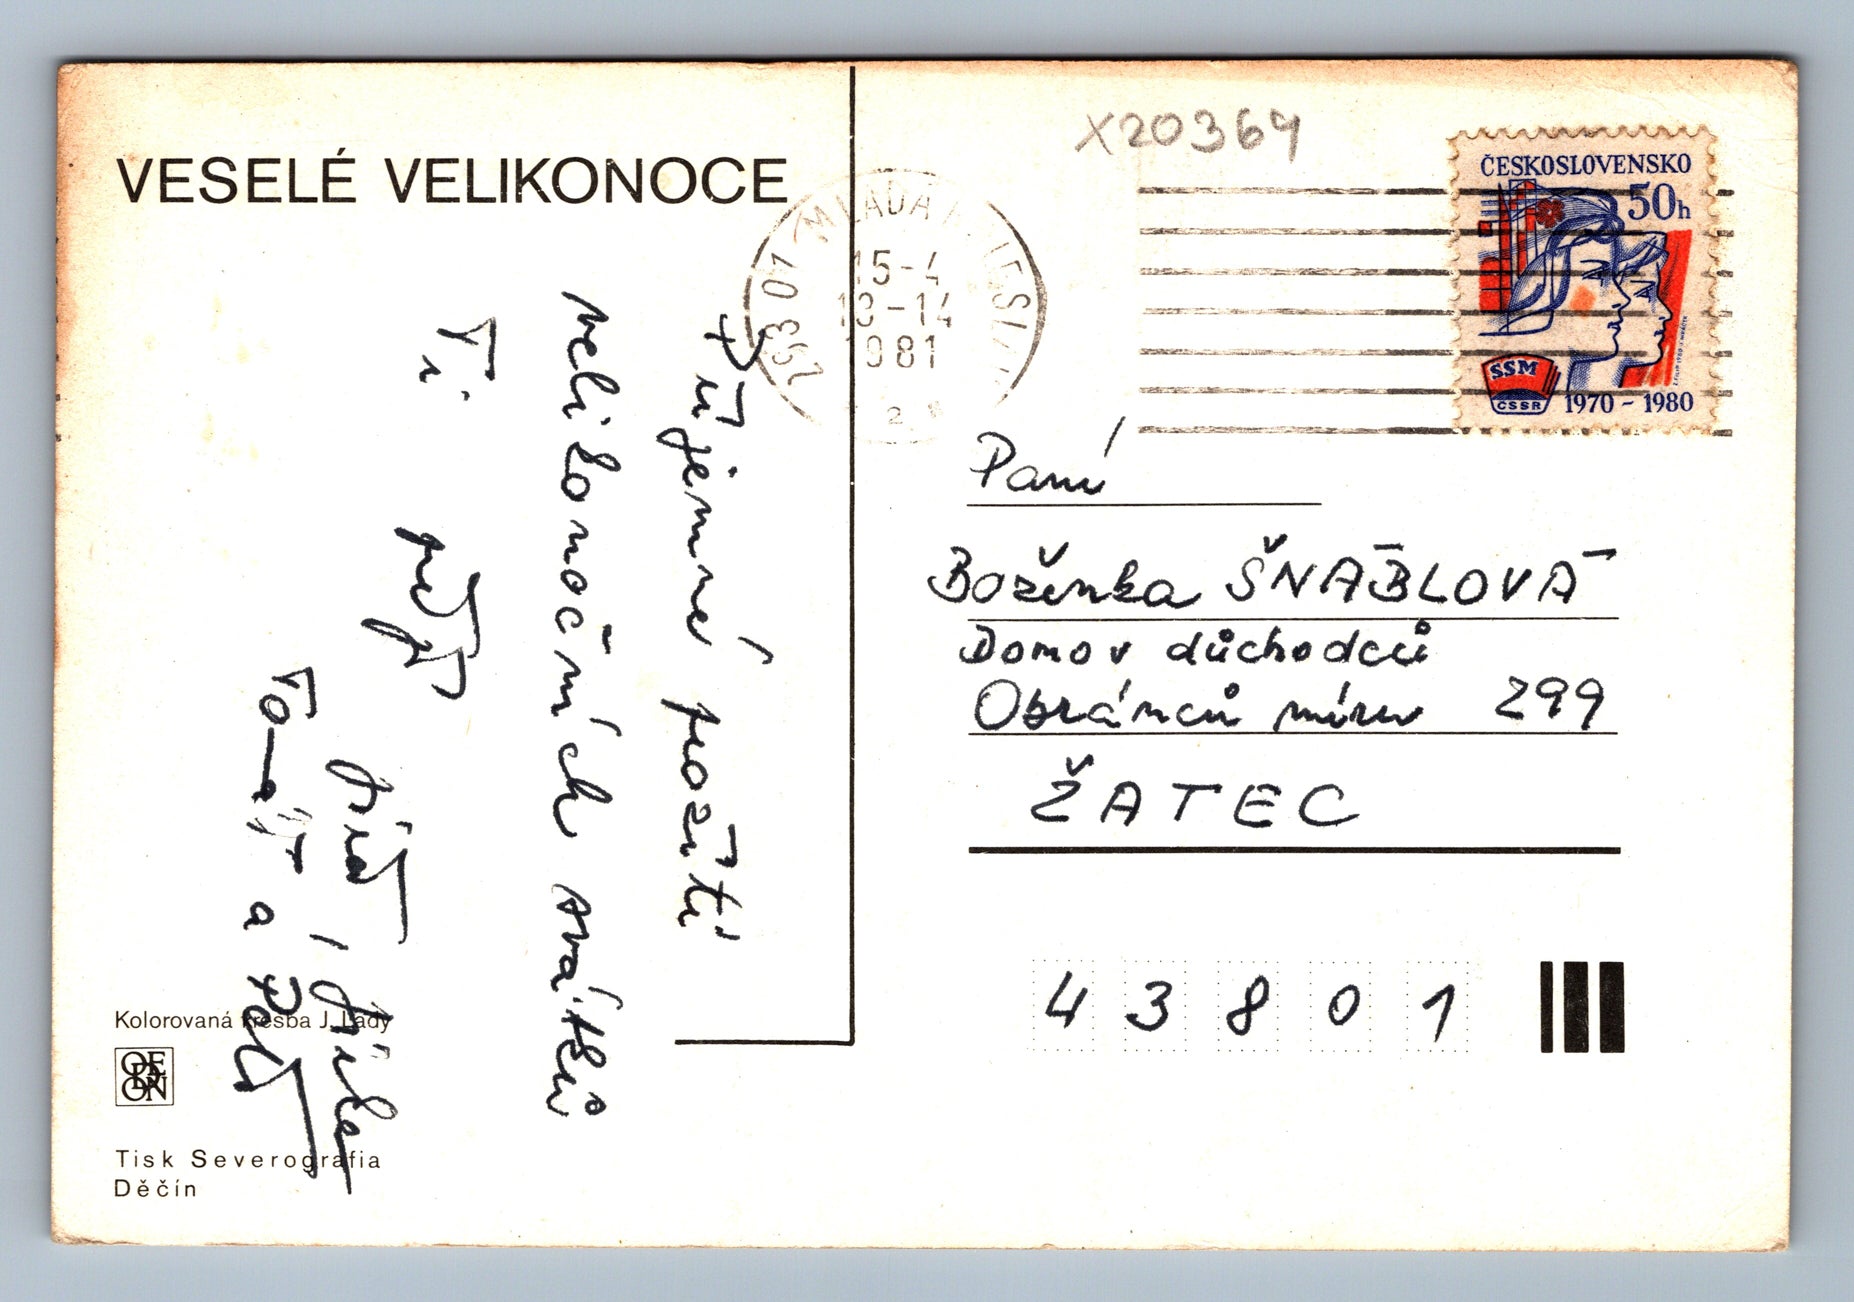 VESELÉ VELIKONOCE
Příjemné prožití
velikonočních svátků
Ti přejí
Jirka
Tomáš a Petr
Kolorovaná kresba J. Lady
ODEON
Tisk Severografia
Děčín
X20364
293 01 MLADÁ BOLESLAV
15-4
13-14
1981
2
ČESKOSLOVENSKO
50h
SSM
ČSSR
1970 - 1980
Paní
Boženka ŠNÁBLOVÁ
Domov důchodců
Obránců míru 299
ŽATEC
43801